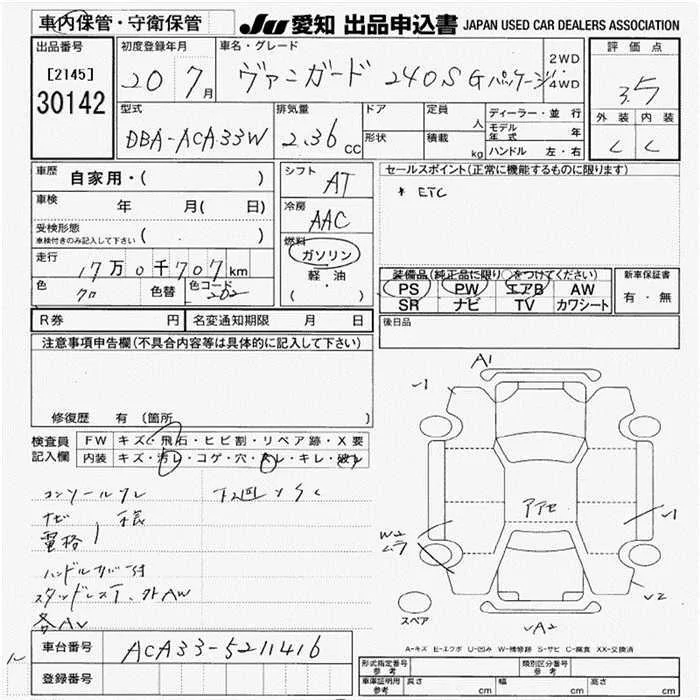 車内保管・守衛保管
JU 愛知 出品申込書 JAPAN USED CAR DEALERS ASSOCIATION
出品番号
[2145]
30142
初度登録年月
20 7月
車名・グレード
ヴァンガード 240S Gパッケージ
2WD
・
4WD
評価点
3.5
外装 内装
C C
型式
DBA-ACA33W
排気量
2.36 cc
ドア
形状
定員 人
積載 kg
ディーラー・並行
モデル年式 年
ハンドル 左・右
車歴 自家用・( )
車検 年 月( 日)
受検形態
車検付きのみ記入して下さい ( )
走行 17万0千707km
色 クロ 色替 色コード 202
シフト AT
冷房 AAC
燃料
ガソリン
軽・油
( ・ )
セールスポイント(正常に機能するものに限ります)
* ETC
装備品(純正品に限り○をつけてください)
PS PW エアB AW
SR ナビ TV カワシート
新車保証書
有・無
後日品
R券 円 名変通知期限 月 日
注意事項申告欄(不具合内容等は具体的に記入して下さい)
修復歴 有 (箇所 )
検査員
記入欄
FW キズ・飛石・ヒビ割・リペア跡・X要
内装 キズ・汚レ・コゲ・穴・スレ・キレ・破レ
コンソールスレ 下回りサビ
ナビ
電格
ハンドルカバー付
スタッドレスT、外AW
A1
W2
ムラ
A2
スペア
A-キズ E-エクボ U-凹み W-補修跡 S-サビ C-腐食 XX-交換済
車台番号 ACA33-5211416
登録番号
形式指定番号
参考
類別区分番号
車庫証明用
参考
長さ cm 幅 cm 高さ cm